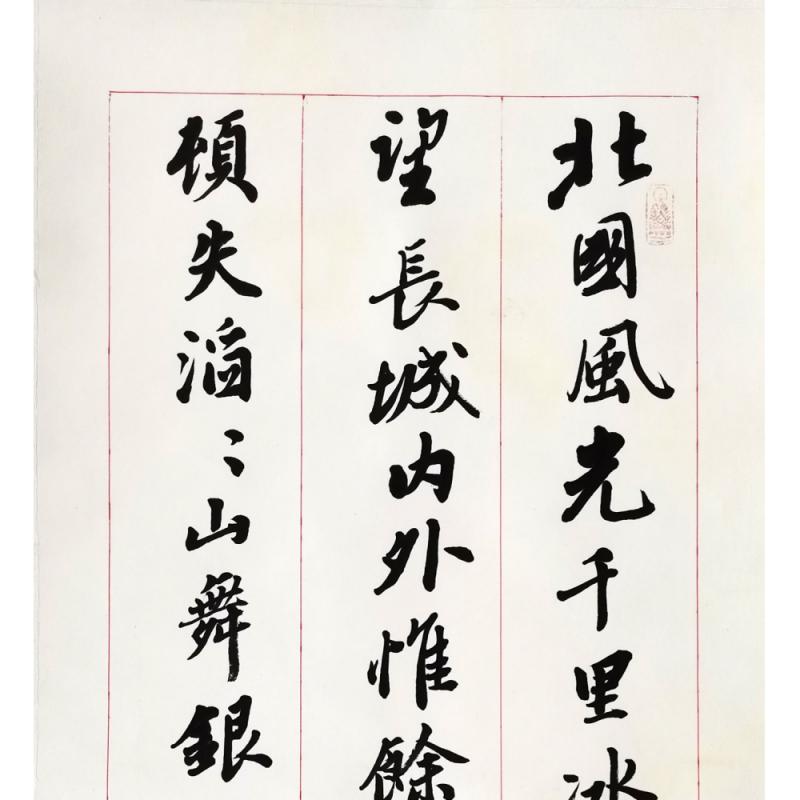 北國風光千里冰
望長城内外惟餘
頓失滔〻山舞銀